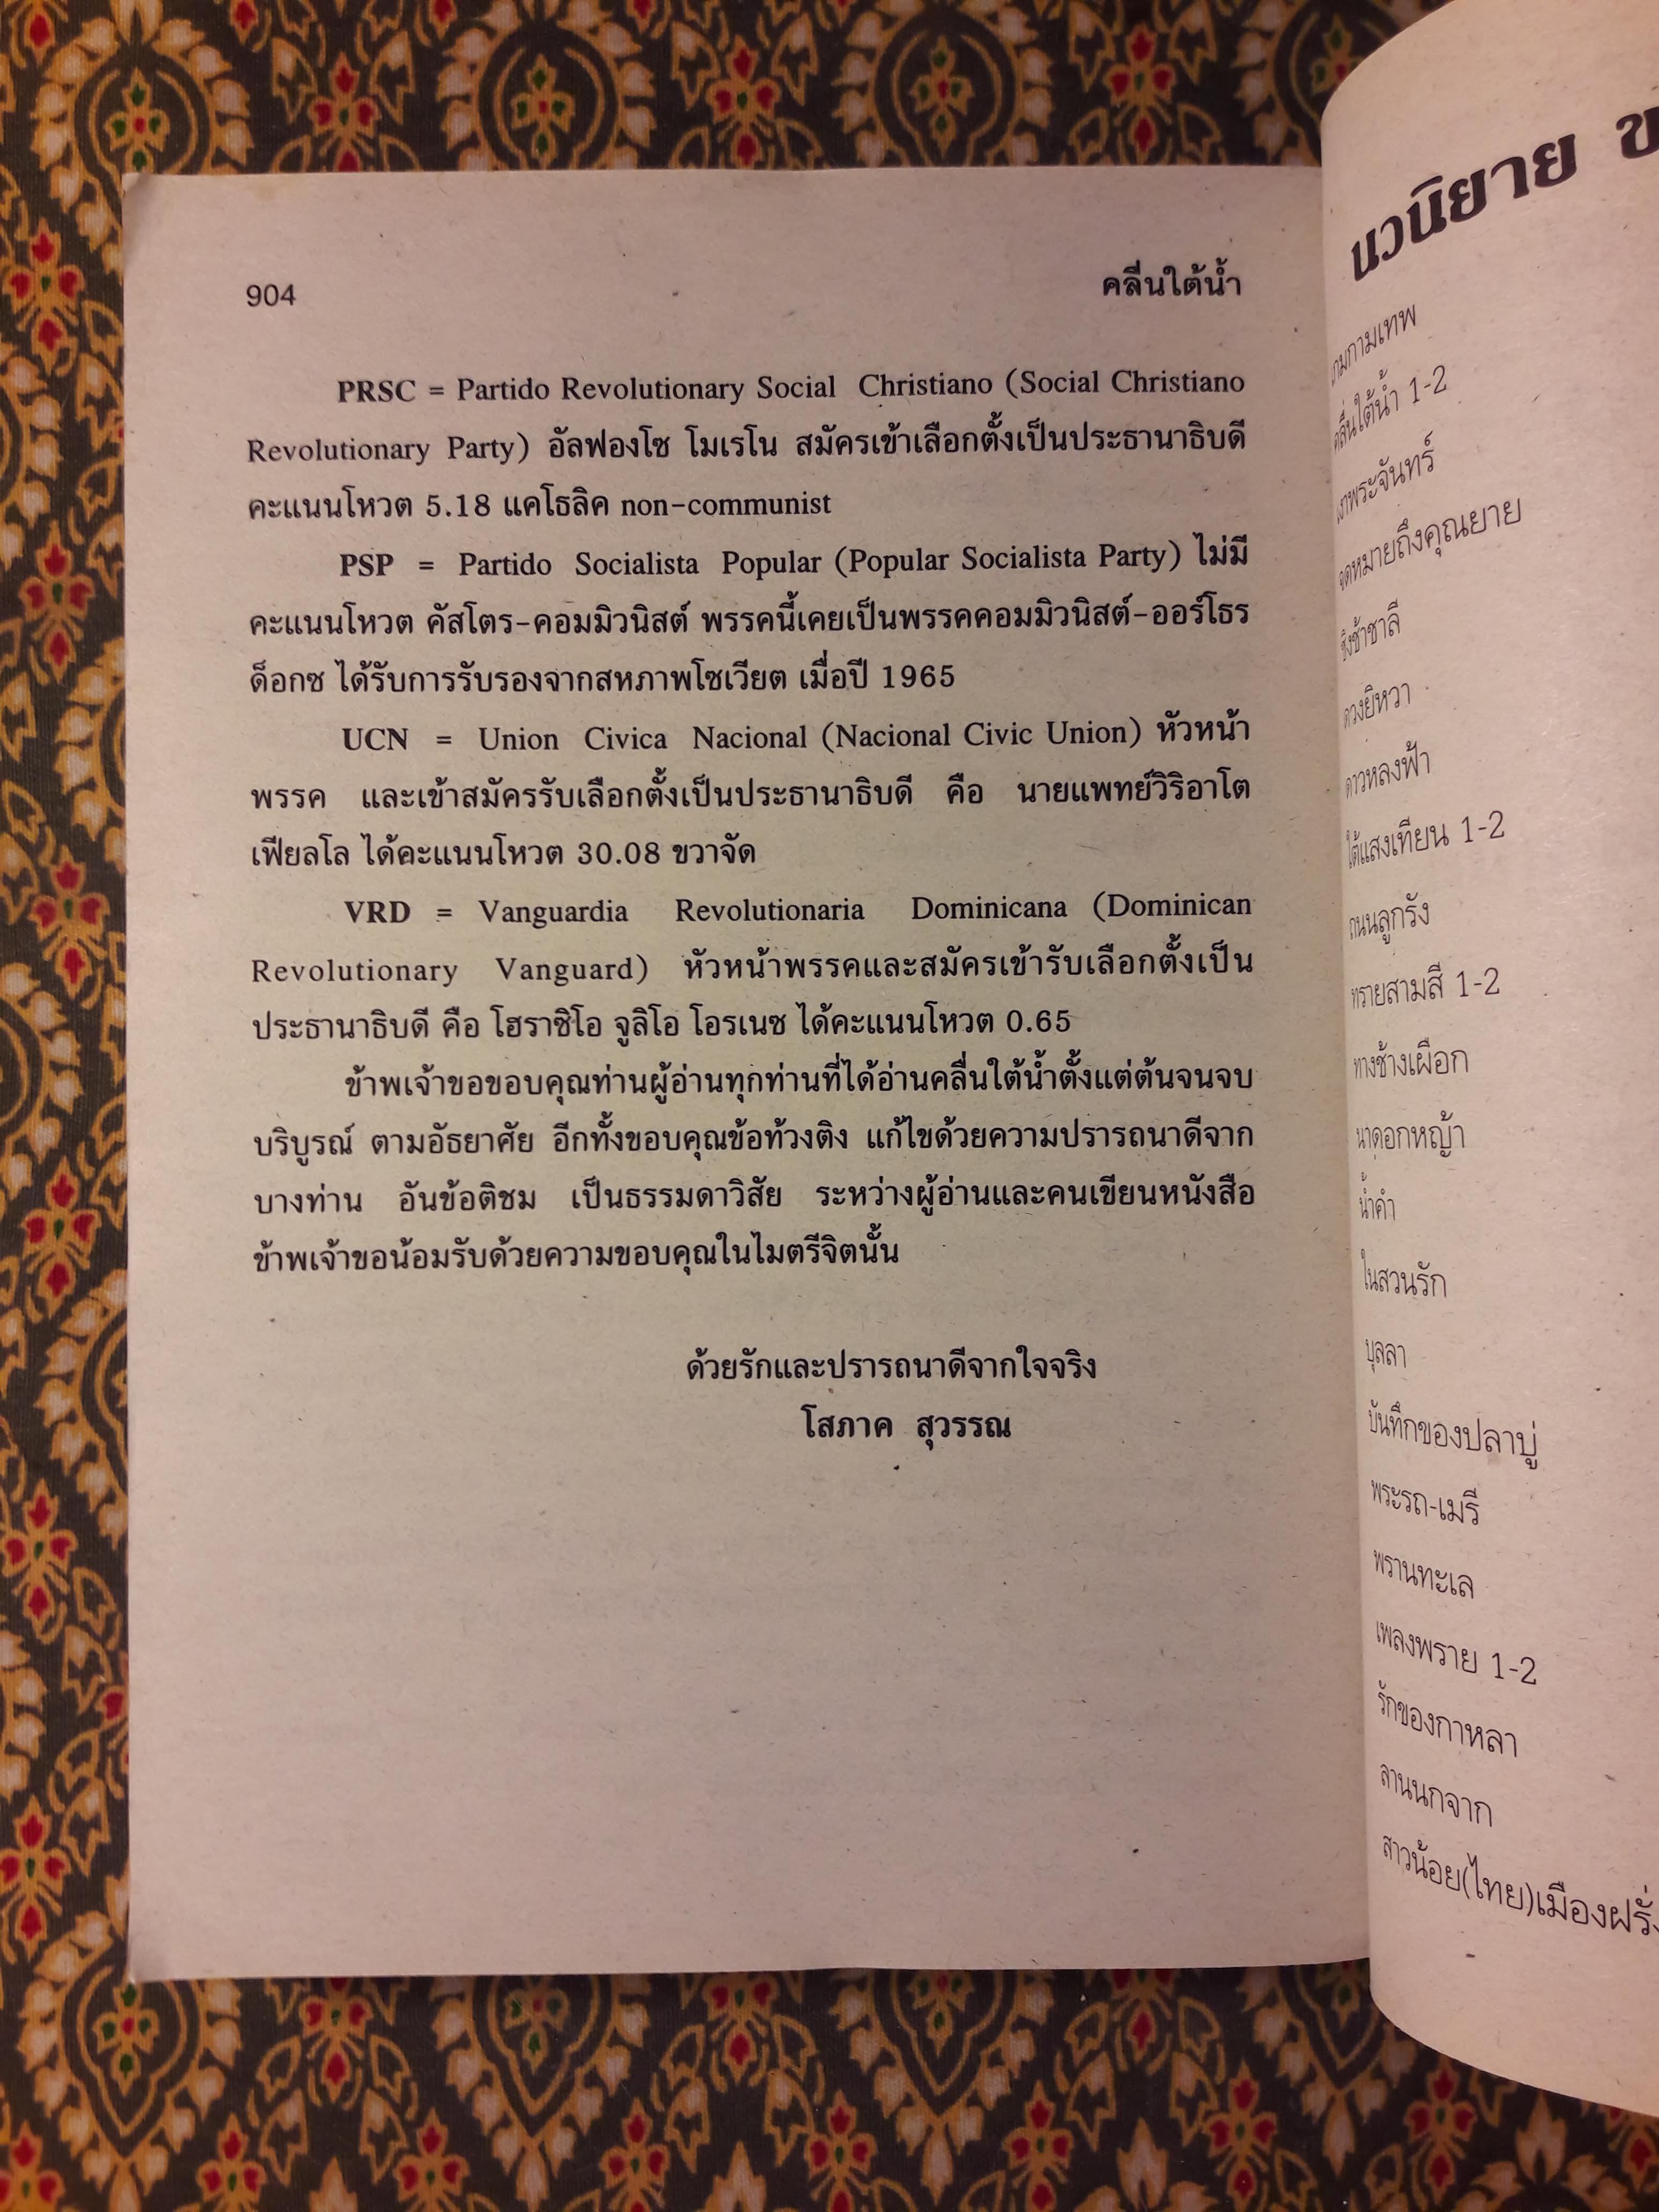 904
คลื่นใต้น้ำ
PRSC = Partido Revolutionary Social Christiano (Social Christiano
Revolutionary Party) อัลฟองโซ โมเรโน สมัครเข้าเลือกตั้งเป็นประธานาธิบดี
คะแนนโหวต 5.18 แคโธลิค non-communist
PSP = Partido Socialista Popular (Popular Socialista Party) ไม่มี
คะแนนโหวต คัสโตร-คอมมิวนิสต์ พรรคนี้เคยเป็นพรรคคอมมิวนิสต์-ออร์โธร
ด็อกซ ได้รับการรับรองจากสหภาพโซเวียต เมื่อปี 1965
UCN = Union Civica Nacional (Nacional Civic Union) หัวหน้า
พรรค และเข้าสมัครรับเลือกตั้งเป็นประธานาธิบดี คือ นายแพทย์วิริอาโต
เฟียลโล ได้คะแนนโหวต 30.08 ขวาจัด
VRD = Vanguardia Revolutionaria Dominicana (Dominican
Revolutionary Vanguard) หัวหน้าพรรคและสมัครเข้ารับเลือกตั้งเป็น
ประธานาธิบดี คือ โฮราซิโอ จูลิโอ โอรเนซ ได้คะแนนโหวต 0.65
ข้าพเจ้าขอขอบคุณท่านผู้อ่านทุกท่านที่ได้อ่านคลื่นใต้น้ำตั้งแต่ต้นจนจบ
บริบูรณ์ ตามอัธยาศัย อีกทั้งขอบคุณข้อท้วงติง แก้ไขด้วยความปรารถนาดีจาก
บางท่าน อันข้อติชม เป็นธรรมดาวิสัย ระหว่างผู้อ่านและคนเขียนหนังสือ
ข้าพเจ้าขอน้อมรับด้วยความขอบคุณในไมตรีจิตนั้น
ด้วยรักและปรารถนาดีจากใจจริง
โสภาค สุวรรณ
นวนิยาย ข
เกมกามเทพ
คลื่นใต้น้ำ 1-2
เงาพระจันทร์
จดหมายถึงคุณยาย
ชิงช้าชาลี
ดวงยิหวา
ดาวหลงฟ้า
ใต้แสงเทียน 1-2
ถนนลูกรัง
ทรายสามสี 1-2
ทางช้างเผือก
นาดอกหญ้า
น้ำคำ
ในสวนรัก
บุลลา
บันทึกของปลาบู่
พระรถ-เมรี
พรานทะเล
เพลงพราย 1-2
รักของกาหลา
ลานนกจาก
สาวน้อย(ไทย)เมืองฝรั่ง